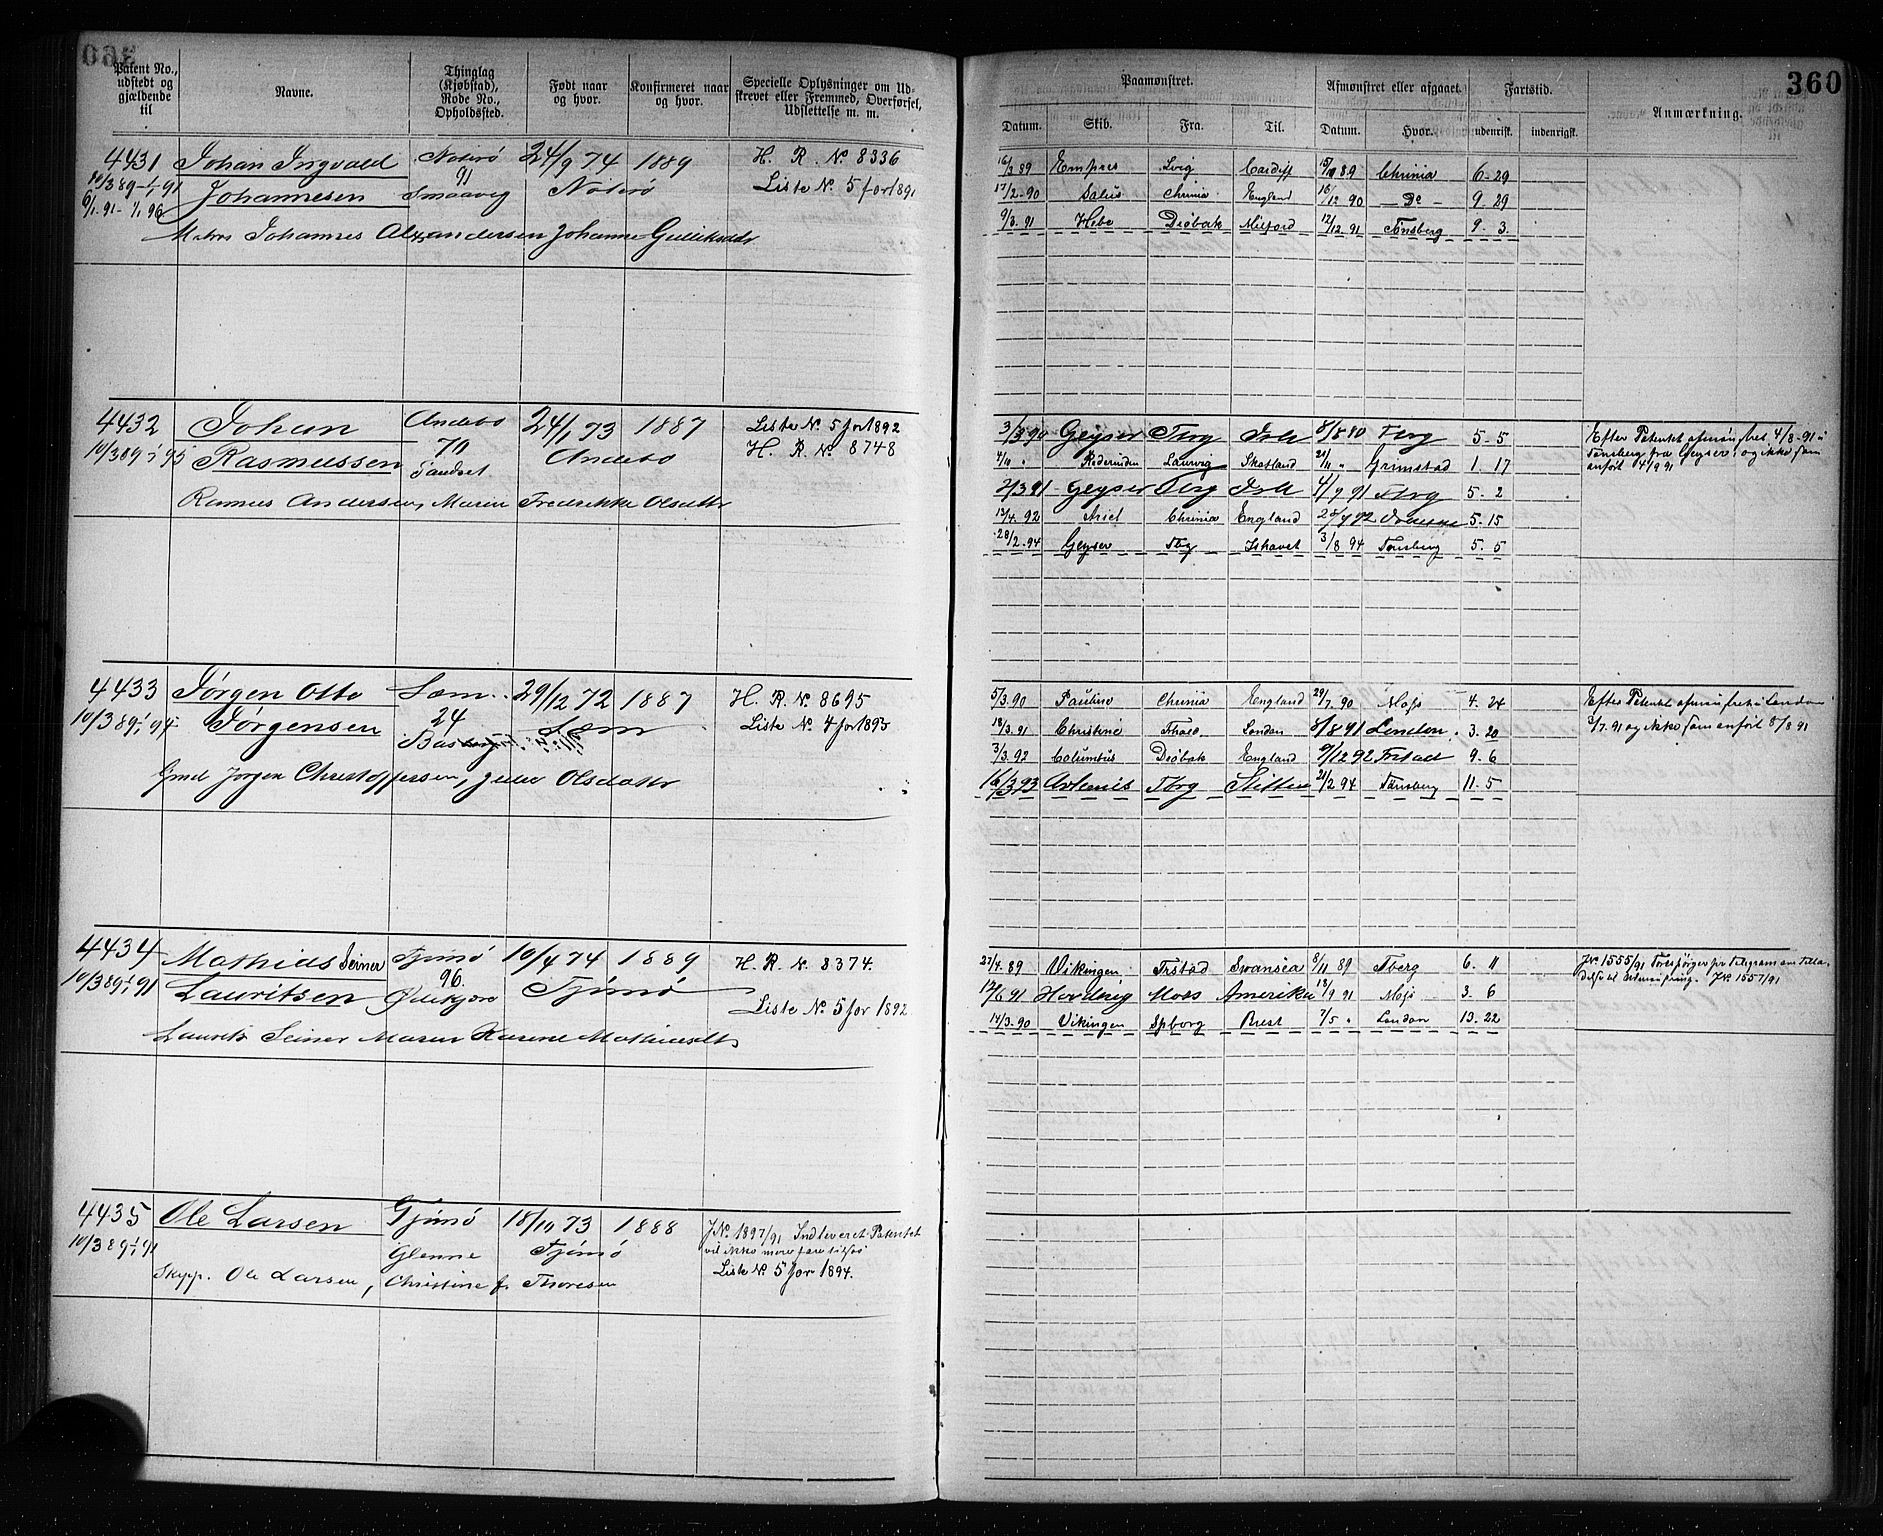 360
Patent No., udstedt og gjældende til
Navne.
Thinglag (Kjøbstad), Rode No., Opholdssted.
Født naar og hvor.
Konfirmeret naar og hvor.
Specielle Oplysninger om Udskrevet eller Fremmed, Overførsel, Udslettelse m. m.
Paamønstret.
Afmønstret eller afgaaet.
Fartstid.
Anmærkning.
Datum. Skib. Fra. Til. Datum. Hvor. udenrigsk. indenrigsk.
4431 Johan Ingvald Nøterø 24/9 74 1889 H. R. No 8336
10/3 89-1/1 91 91
Johannesen Smaavig Nøterø Liste No 5 for 1891
6/1 91- 1/1 96
Johannes Alexandersen Johanne Guliksdtr
16/3 89 Empres Lvig Cardiff 15/10 89 Chrinia 6-29
17/2-90 Salus Chrinia England 16/12 90 — Do — 9-29
9/3. 91 Hebe Drøbak Milford 12/12. 91 Tønsberg 9-3
4432 Johan Andebo 24/1 73 1887 Liste No 5 for 1892
10/3 89-1/1 95 Rasmussen 70 Andebo H. R. No 8748
Rasmus Andersen, Maren Fredrikke Olsdttr
3/3 90 Geyser Tbrg Ish 8/8 80 Tbrg 5-5
4/10 " Laurvig Skotland 21/11 " Grimstad 1. 17
2/3 91 Geyser Tbrg Ish 4/9 91 Tbrg 5-2
13/4. 92 Ariel Chrinia England 5-15
28/2-94 Geyser Tbg Ishavet 3/8 94 Tønsberg 5-5
Efter Patentet afmønstret 4/8-91 i
Tønsberg fra Geyser og ikke som
anført 4/9 91
4433 Jørgen Otto Sem 29/12 72 1887 H. R. No 8695
10/3 89-1/1 94 Jørgensen 24 Sem Liste No 4 for 1895
Jørgen Christoffersen, Olsdatter
5/3. 90 Pauline Chrinia England 29/7. 90 Moss 4. 24
18/3. 91 Christine London 8/8 91 London 3. 20
3/3. 92 Columbus Drøbak England 9/12 92 Frstad 9-6
16/3 93 Artemis Tbrg Stettin 21/2 94 Tønsberg 11-5
Efter Patentet afmønstret i London
7.91 og ikke som anført 8/8 91
4434 Mathias Seiner Tjømø 10/4 74 1889 H. R. No. 8374.
10/3 89-1/1 91 Lauritsen 96. Tjømø
Liste No 5 for 1892
Laurits Seiner Maren Karene Mathiasdtr
27/4. 89 Vikingen Frstad Swansea 8/11 89 Tberg 6. 11
Moss Amerika 18/9 91 Moss 3. 6
14/3. 90 Vikingen Spborg Brest 7/5 " London 13. 22
JNo 1555/91 Forespørger pr Telegram om Tilla-
delse til Afmønstring. JNo 1557/91
4435 Ole Larsen Tjømø 18/10 73 1888 JNo 1897/91 Indleveret Patentet
10/3 89-1/1 91 Glenne Tjømø vil ikke mere fare tilsøs
Liste No 5 for 1894.
Skpp. Ole Larsen, Christine f. Thoresen